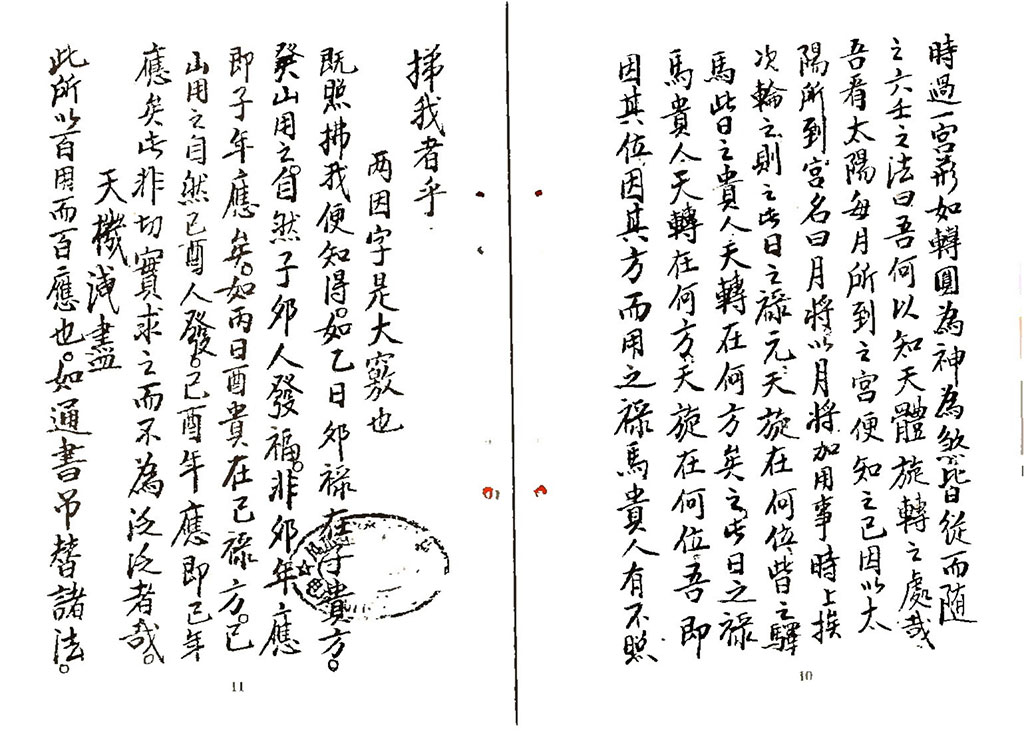 時過一宮前如轉圓為神為煞皆從而随
之六壬之法曰吾何以知天體旋轉之處哉
吾看太陽每月所到之宮便知之已因以太
陽所到宮名曰月將以月將加用事時上挨
次輪之則之此日之祿元天旋在何位皆之驛
馬此日之貴人天轉在何方矣之此日之祿
馬貴人今天轉在何方天旋在何位吾即
因其位因其方而用之祿馬貴人有不照
10
我者乎
两因字是大竅也
既照拂我便知得。如乙日夘祿在子貴方。
癸山用之。自然子夘人發福。非夘年應
即子年應矣。如丙日酉貴在己祿方。已
山用之自然已酉人發。已酉年應即已年
應矣此非切實求之而不為泛泛者哉。
天機洩盡
此所以百用而百應也。如通書吊替諸法。
11